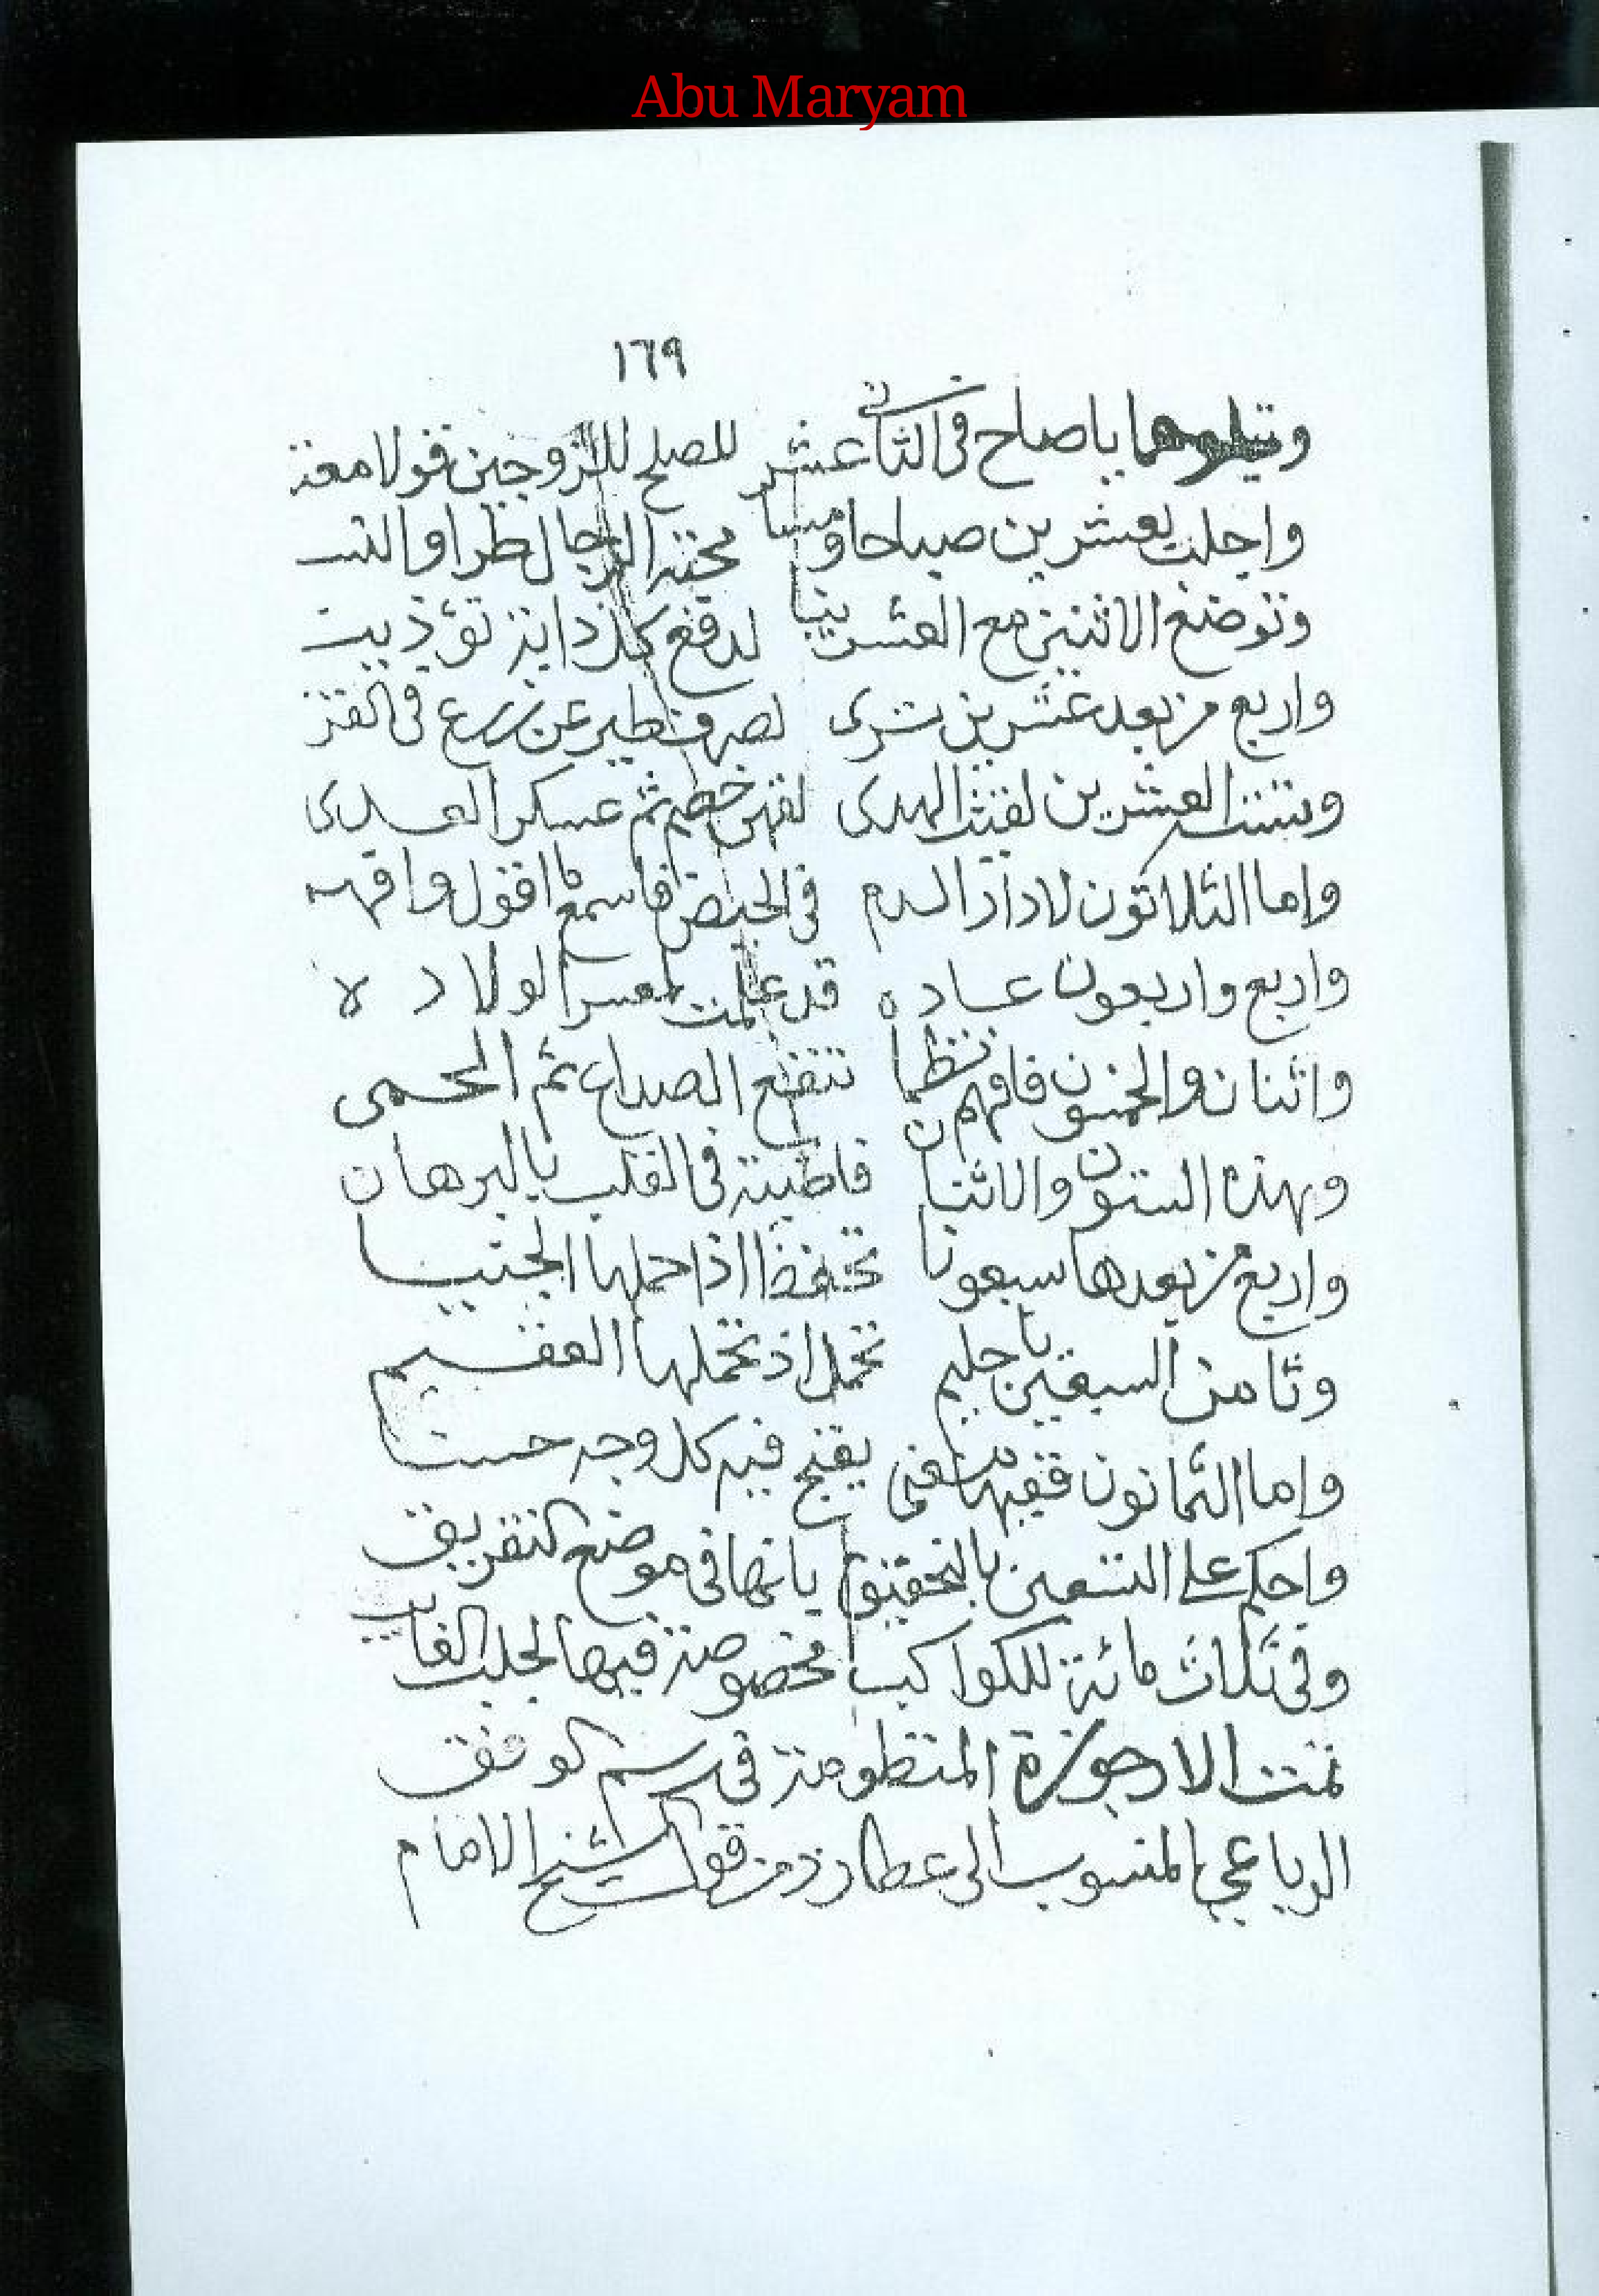 Abu Maryam
١٦٩
وتيلوهما ياصاح فى الثانى عشر للصلح للزوجين قولا معتبر
واجلب لعشرين صباحا ومسا محبة الرجال طرا والنسا
وتوضع الاثنين مع العشرينا لدفع كل دابة تؤذينا
واربع من بعد عشرين ترى لصرف طير عن زرع فى القرى
العشرين الهدى لقهر خصم ثم عسكر العدى
واما الثلاثون لادرار الدم فى الحيض فاسمع ما اقول وافهم
واربع واربعون عاده قد علمت لعسر الولاده
واثنان والخمسون فافهم نظما تنفع الصداع ثم الحمى
وبهذه الستون والاثنان فى القلب بالبرهان
واربع من بعدها سبعونا تحفظ اذا حملها الجنينا
وثامن السبعين يا حليم تحمل اذ تحملها العقيم
واما الثمانون ففيها معنى يفتح فيه كل وجه حسنا
واحكم على التسعين بالتحقيق بانها فى موضع التفريق
وفى ثلاث مائة للكواكب مخصوصة فيها لجلب الغائب
تمت الارجوزة المنظومة فى رسم الوفق
الرباعى المنسوب الى عطارد من قول الشيخ الامام